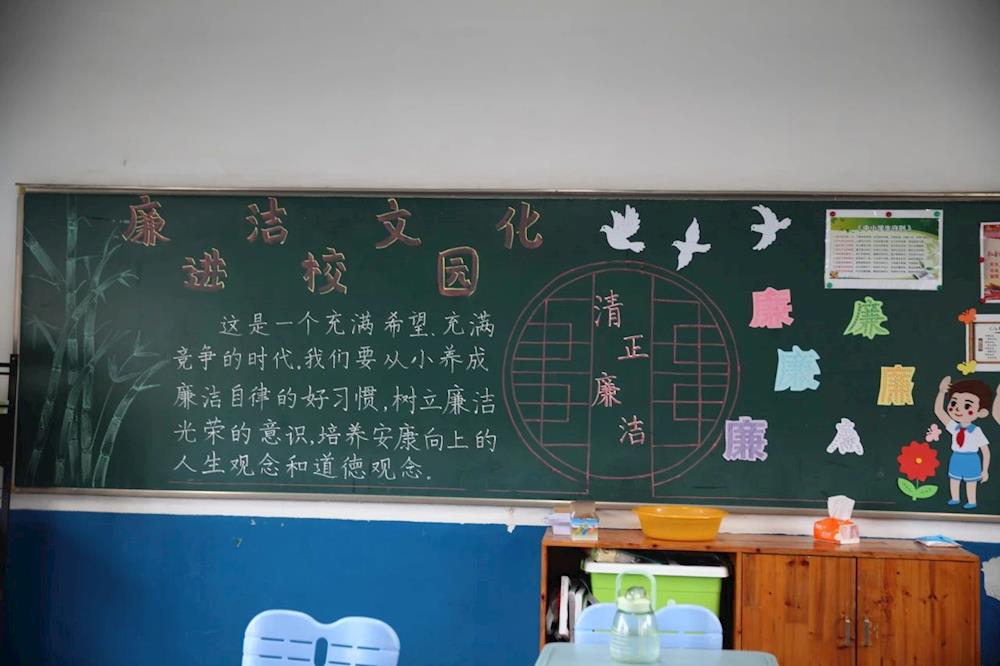 廉洁文化
进校园
这是一个充满希望、充满
竞争的时代,我们要从小养成
廉洁自律的好习惯,树立廉洁
光荣的意识,培养安康向上的
人生观念和道德观念。
清正廉洁
《中小学生守则》
廉
廉
廉
廉
廉
廉